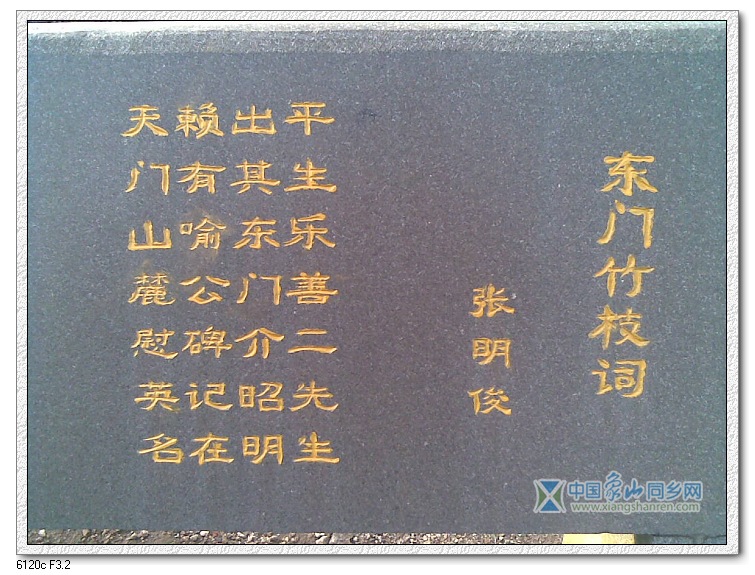 东门竹枝词
张明俊
平生乐善二先生
出其东门介昭明
赖有喻公碑记在
天门山麓慰英名
中国象山同乡网
www.xiangshanren.com
6120c F3.2